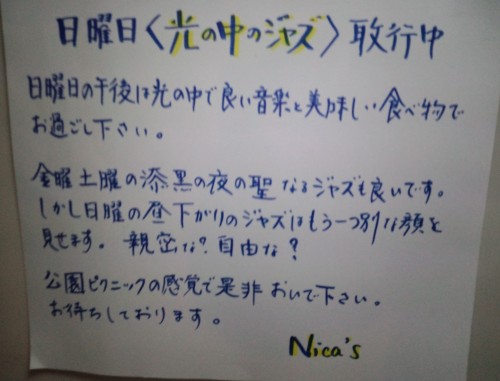 日曜日〈光の中のジャズ〉敢行中
日曜日の午後は光の中で良い音楽と美味しい食べ物で
お過ごし下さい。
金曜土曜の漆黒の夜の聖なるジャズも良いです。
しかし日曜の昼下がりのジャズはもう一つ別な顔を
見せます。親密な?自由な?
公園ピクニックの感覚で是非おいで下さい。
お待ちしております。
Nica's